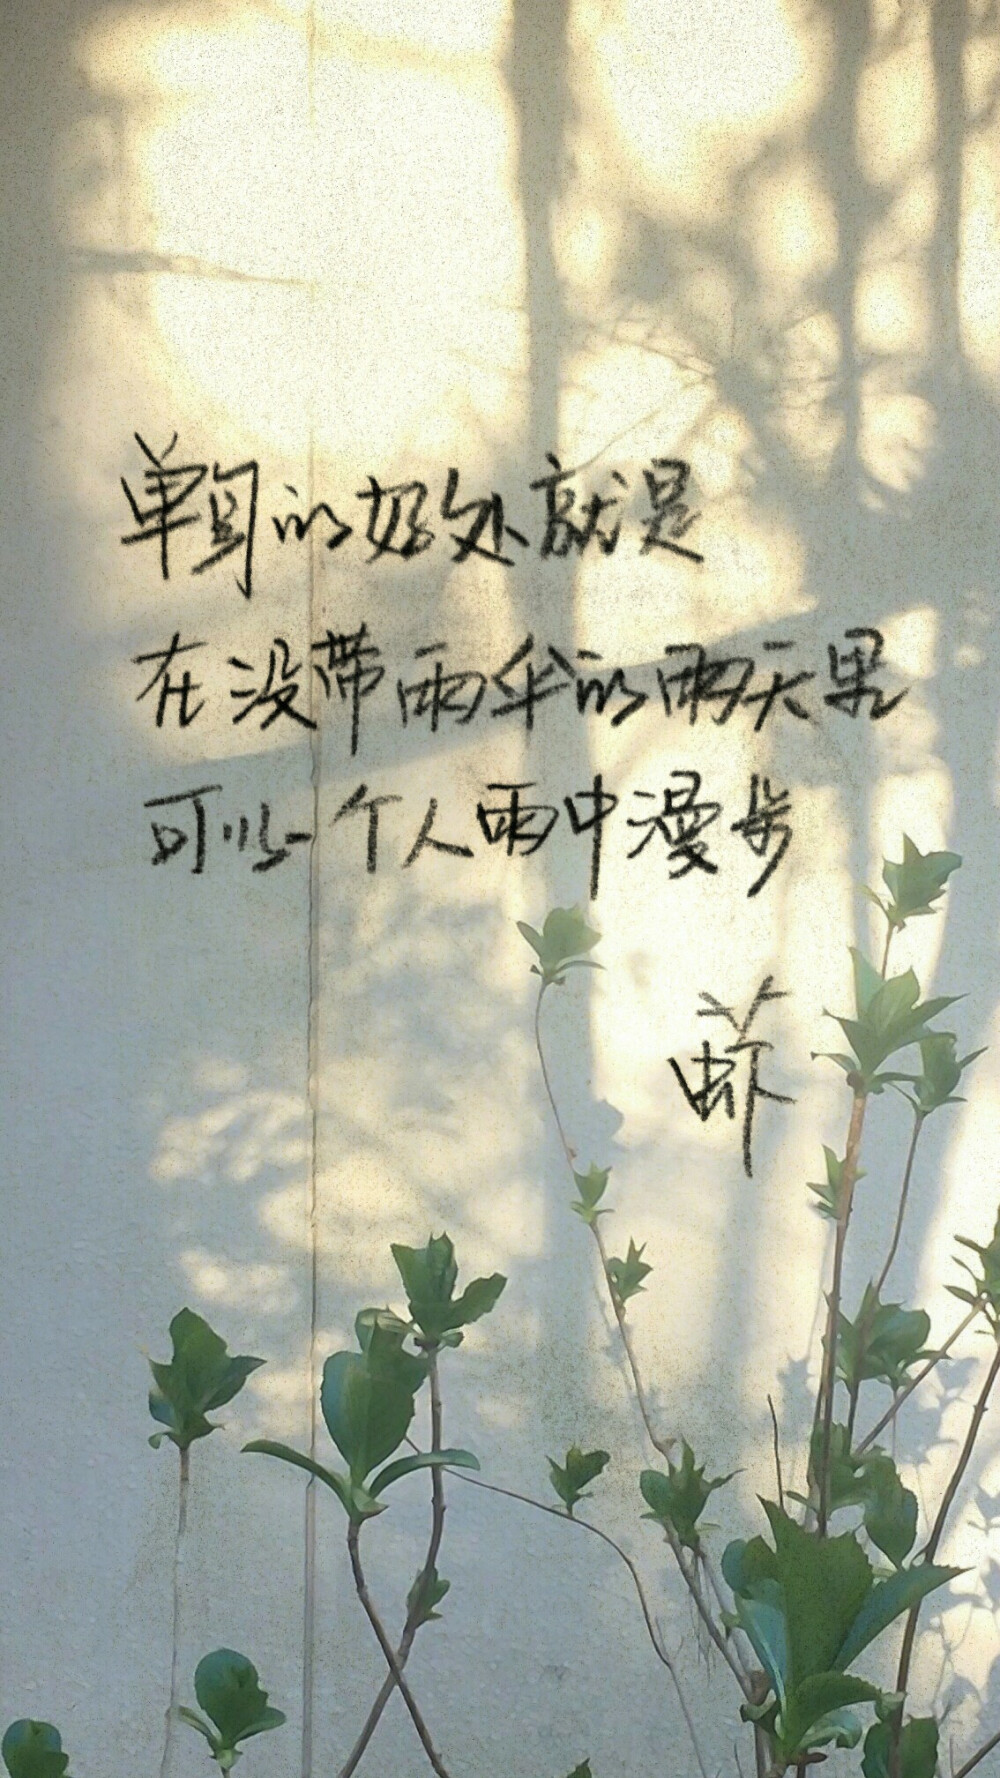 单身的好处就是
在没带雨伞的雨天里
可以一个人雨中漫步